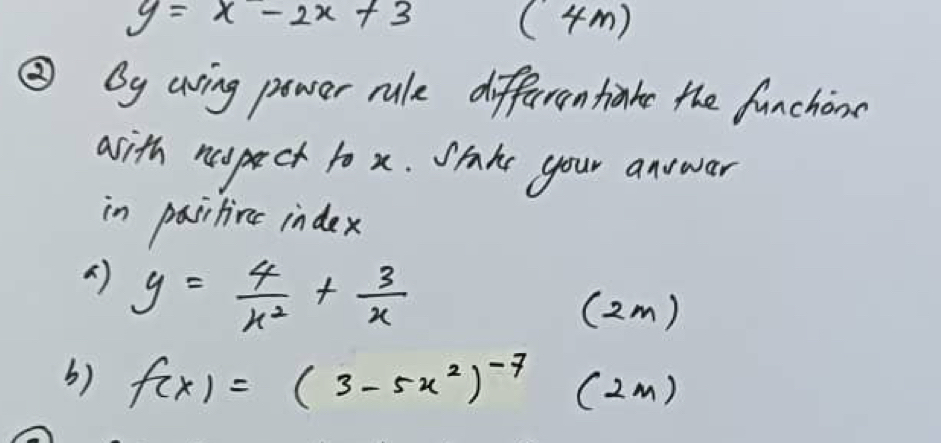 y = x² - 2x + 3 (4m)
② By using power rule differentiate the functions
with respect to x. State your answer
in positive index
a) y = 4/x² + 3/x (2m)
b) f(x) = (3 - 5x²)⁻⁷ (2m)